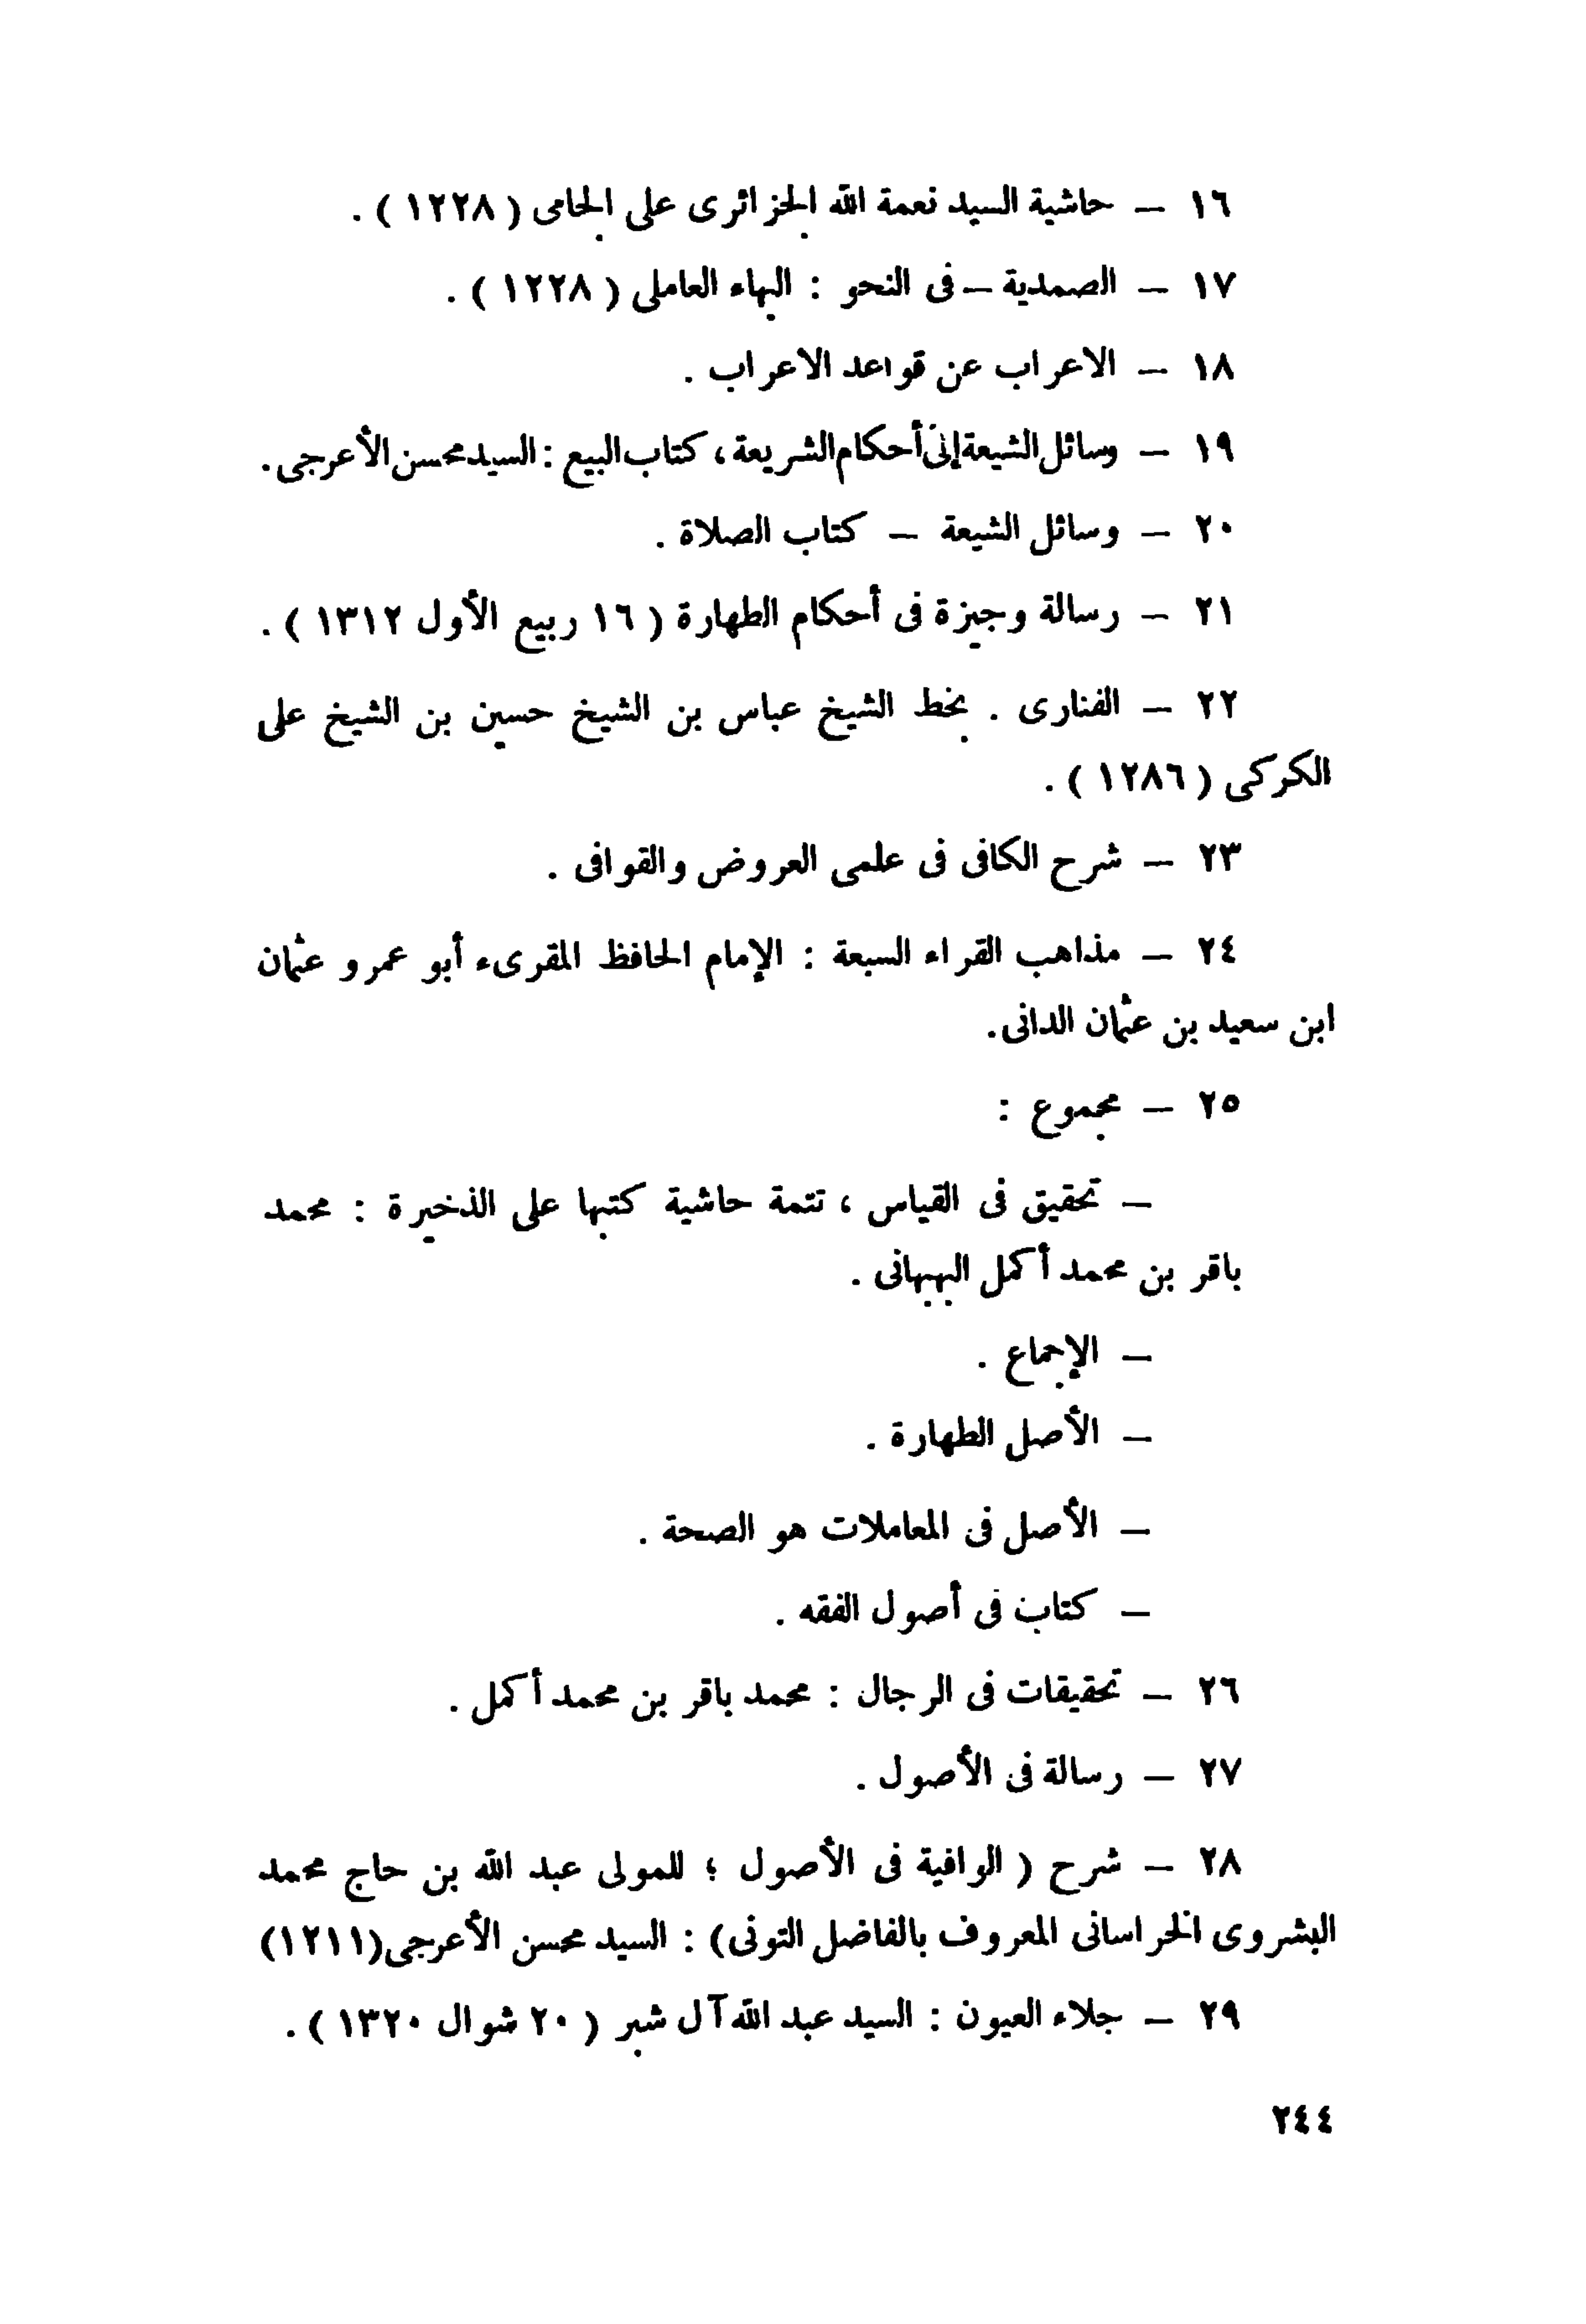 ١٦ – حاشية السيد نعمة الله الجزائرى على الجامى ( ١٢٢٨ ) .
١٧ – الصمدية – فى النحو : البهاء العاملى ( ١٢٢٨ ) .
١٨ – الاعراب عن قواعد الاعراب .
١٩ – وسائل الشيعة إلى أحكام الشريعة ، كتاب البيع : السيد محسن الأعرجى .
٢٠ – وسائل الشيعة – كتاب الصلاة .
٢١ – رسالة وجيزة فى أحكام الطهارة ( ١٦ ربيع الأول ١٣١٢ ) .
٢٢ – الفنارى . بخط الشيخ عباس بن الشيخ حسين بن الشيخ على
الكركى ( ١٢٨٦ ) .
٢٣ – شرح الكافى فى علمى العروض والقوافى .
٢٤ – مذاهب القراء السبعة : الإمام الحافظ المقرىء أبو عمرو عثمان
ابن سعيد بن عثمان الدانى .
٢٥ – مجموع :
– تحقيق فى القياس ، تتمة حاشية كتبها على الذخيرة : محمد
باقر بن محمد أكمل البهبهانى .
– الإجماع .
– الأصل الطهارة .
– الأصل فى المعاملات هو الصحة .
– كتاب فى أصول الفقه .
٢٦ – تحقيقات فى الرجال : محمد باقر بن محمد أكمل .
٢٧ – رسالة فى الأصول .
٢٨ – شرح ( الوافية فى الأصول ؛ للمولى عبد الله بن حاج محمد
البشروى الخراسانى المعروف بالفاضل التونى ) : السيد محسن الأعرجى (١٢١١)
٢٩ – جلاء العيون : السيد عبد الله آل شبر ( ٢٠ شوال ١٣٢٠ ) .
٢٤٤